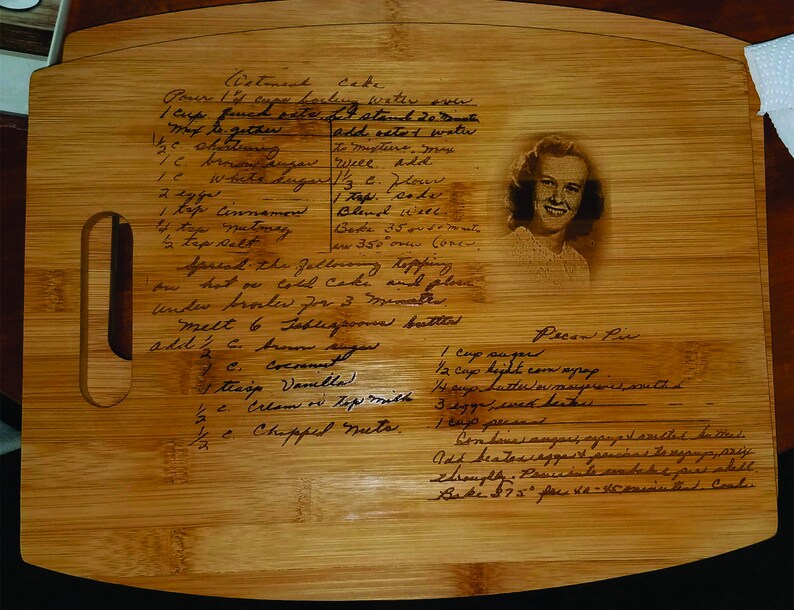 Oatmeal Cake
Pour 1¼ cups boiling water over
1 cup quick oats let stand 20 minutes
Mix together
½ c. shortning
1 C brown sugar
1 C White sugar
2 eggs
1 tsp Cinnamon
¼ tsp Nutmeg
½ tsp salt
add oats & water
to mixture. Mix
Well. add
1⅓ C. flour
1 tsp. soda
Blend Well.
Bake 35 or 40 minutes
in 350° oven
Spread the following topping
on hot or cold cake and place
under broiler for 3 Minutes.
Melt 6 Tablespoons butter
add ½ C. brown sugar
1 C. Cocoanut
1 teasp Vanilla
½ C. Cream or top Milk
½ C. Chopped Nuts.
Pecan Pie
1 cup sugar
½ cup light corn syrup
¼ cup butter or margarine, melted
3 eggs, well beaten
1 cup pecans
Combine sugar, syrup & melted butter.
Add beated eggs & pecans to syrup, mix
throughly. Pour into unbaked pie shell.
Bake 375° for 40-45 minutes. Cool.